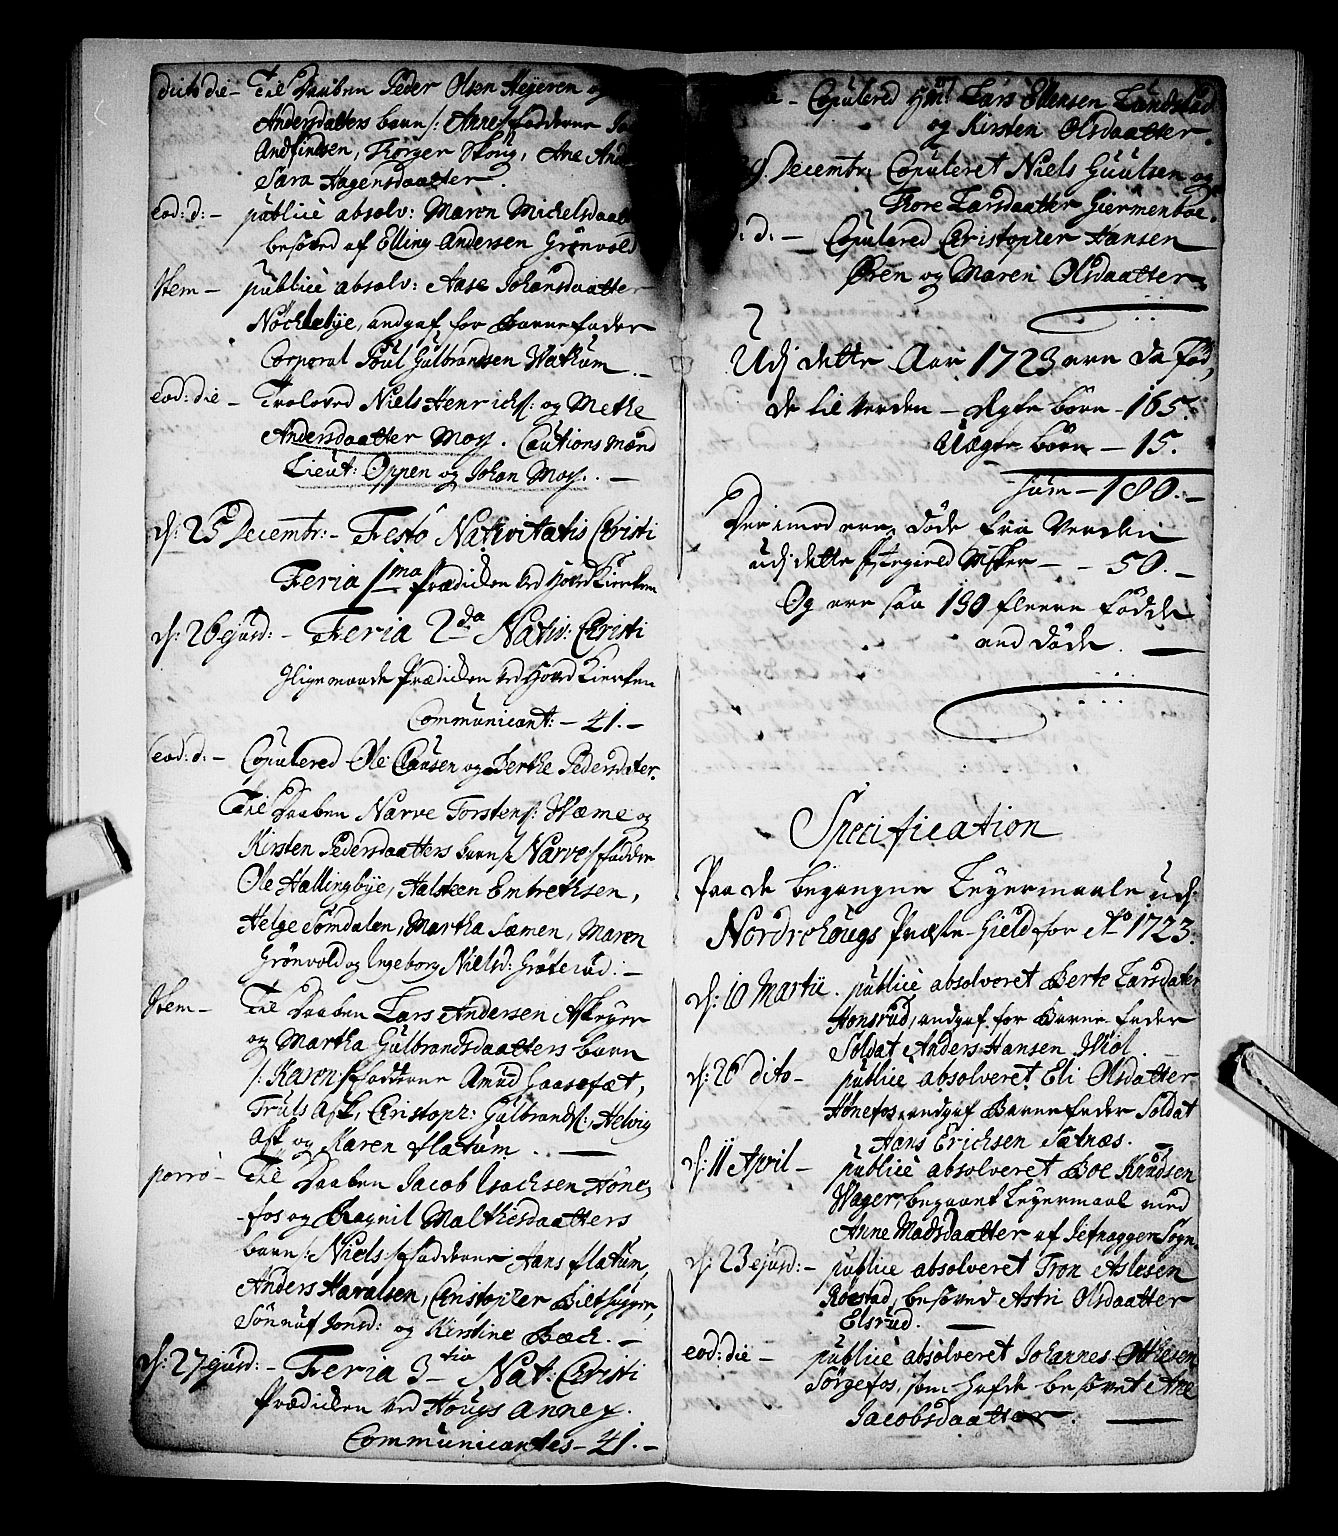 dicto die – Til Daaben Peder Olsen Heyeren og
Andersdatters barn /: Anne :/ fadderne
Andfindsen, Thorger Skong, Ane And
Sara Hagensdaatter.
eod: d: – publicè absolv: Maren Michelsdaat
besøved af Elling Andersen Grønvold
Item – publicè absolv: Aase Johansdaatter
angaf for Barnefader
Corporal Poul Gulbrandsen Wakum.
eod: die – Troloved Niels Henrichs: og Methe
Andersdaatter Moy. Cautions Mænd
Lieut: Oppen og Johan Moy.
d: 25 Decembr: – Festo Nativitatis Christi
Feria 1ma Prædicken ved Hoved Kiercken
d: 26 ejusd: – Feria 2da Nativ: Christi
Ligemaade Prædicken ved Hoved Kiercken
Communicant: – 41. –
eod: d: – Copulered Ole Clausen og Berthe Pedersdater.
Til Daaben Narve Torstens: Wæme og
Kirsten Pedersdaatters barn /: Narve :/ faddere
Ole Hallingbye, Halsteen Embrethsen,
Helge Somdalen, Martha Samen, Maren
Grønvold og Ingeborg Nielsd: Grøterud. –
Item – Til Daaben Lars Andersen Askeyer
og Martha Gulbrandsdaatters barn
/: Karen :/ fadderne Amud Gaasefæt,
Truls Ask, Christoph: Gulbrands:, Helvig
Ask og Karen flatum.
porrò – Til Daaben Jacob Isachsen Høne-
fos og Ragnil Malthesdaatters
barn /: Niels :/ fadderne Hans flatum,
Anders Haralsen, Christopher Bilthugger,
Sønnuf Jonsd: og Kirstine Bæck. –
d: 27 ejusd: – Feria 3tia Nat: Christi
Prædicken ved Hougs annex.
Communicantes – 41. –
– Copulered Lars Ellensen Lundstad
og Kirsten Olsdaatter.
9 Decembr: Copuleret Niels Guulsen og
Thore Larsdaatter Giermenboe.
d: – Copulered Christopher Hansen
Øren og Maren Olsdaatter.
Udj dette Aar 1723 ere da fød,
de til Verden – Ægte børn – 165.
Uægte børn – 15.
Sum – 180. –
Derimod ere døde fra Verden
udj dette Mster – – 50. –
Og ere saa 130 fleere fødde
end døde.
Specification
Paa de begangne Leyermaale udj
Nordrehougs Præste-Gield for Ao 1723.
d: 10 Martii. publicè absolveret Berte Larsdatter
Honsrud, angaf for Barnefader
Soldat Anders Hansen Wiol.
d: 26 dito – publicè absolveret Eli Olsdaatter
Hønefos, angaf Barnefader Soldat
Hans Erichsen Satnæs.
d: 11 April – publicè absolveret Boe Knudsen
Wager, begaaet Leyermaal med
Anne Madsdaatter af Jefnagger Sogn.
d: 23 ejusd: – publicè absolveret Tron Aslesen
Røestad, besøved Astri Olsdaatter
Elsrud. –
eod: die – publicè absolveret Johannes Othesen
Sørgefos, som hafde besøvet Ane
Jacobsdaatter.